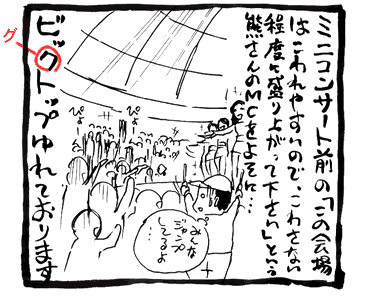 ミニコンサート前の「この会場
はこわれやすいので、こわさない
程度に盛り上がって下さい」という
熊さんのMCをよそに…
ぴょ
ぴょ
みんな
ジャンプ
してるよ
グ
ビックトップゆれております